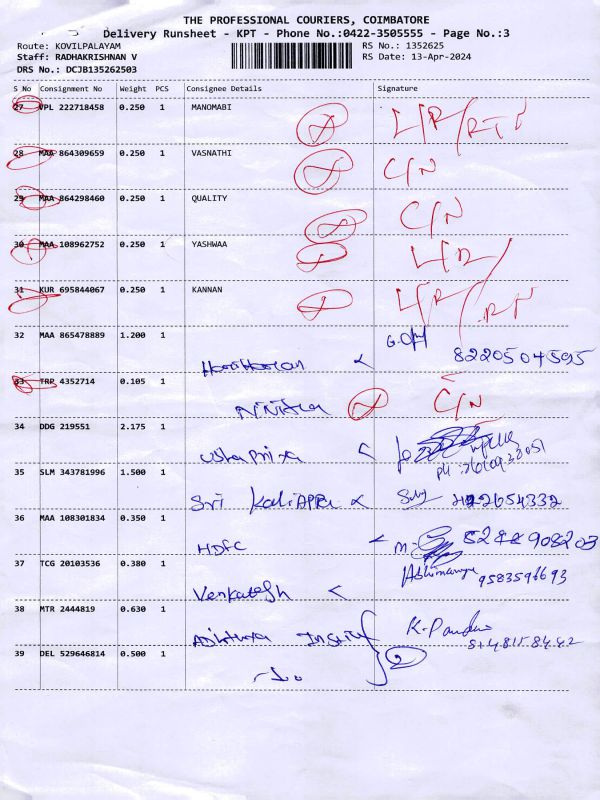 THE PROFESSIONAL COURIERS, COIMBATORE
Delivery Runsheet - KPT - Phone No.:0422-3505555 - Page No.:3
Route: KOVILPALAYAM RS No.: 1352625
Staff: RADHAKRISHNAN V RS Date: 13-Apr-2024
DRS No.: DCJB135262503
S No Consignment No Weight PCS Consignee Details Signature
27 VPL 222718458 0.250 1 MANOMABI L/R/RTP
28 MAA 864309659 0.250 1 VASNATHI C/N
29 MAA 864298460 0.250 1 QUALITY C/N
30 MAA 108962752 0.250 1 YASHWAA L/R/
31 KUR 695844067 0.250 1 KANNAN L/R/RT
32 MAA 865478889 1.200 1
Hariharan 8220504595
33 TRP 4352714 0.105 1
C/N
34 DDG 219551 2.175 1
Usha Priya
35 SLM 343781996 1.500 1
Sri
36 MAA 108301834 0.350 1
HDFC
37 TCG 20103536 0.380 1
Venkatesh Abhimanyu 9583596693
38 MTR 2444819 0.630 1
K. Pandu
39 DEL 529646814 0.500 1
2